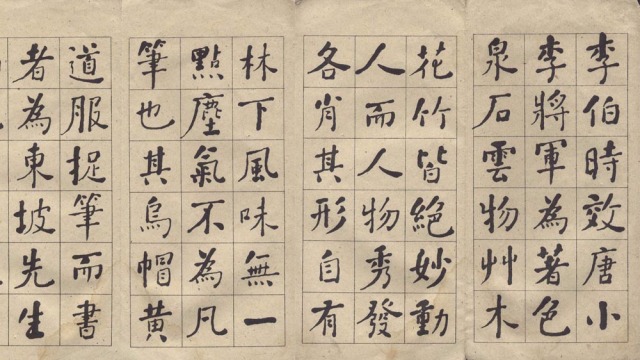 李伯時效唐小
李將軍為著色
泉石雲物艸木
花竹皆絕妙動
人而人物秀發
各肖其形自有
林下風味無一
點塵氣不為凡
筆也其烏帽黃
道服捉筆而書
者為東坡先生